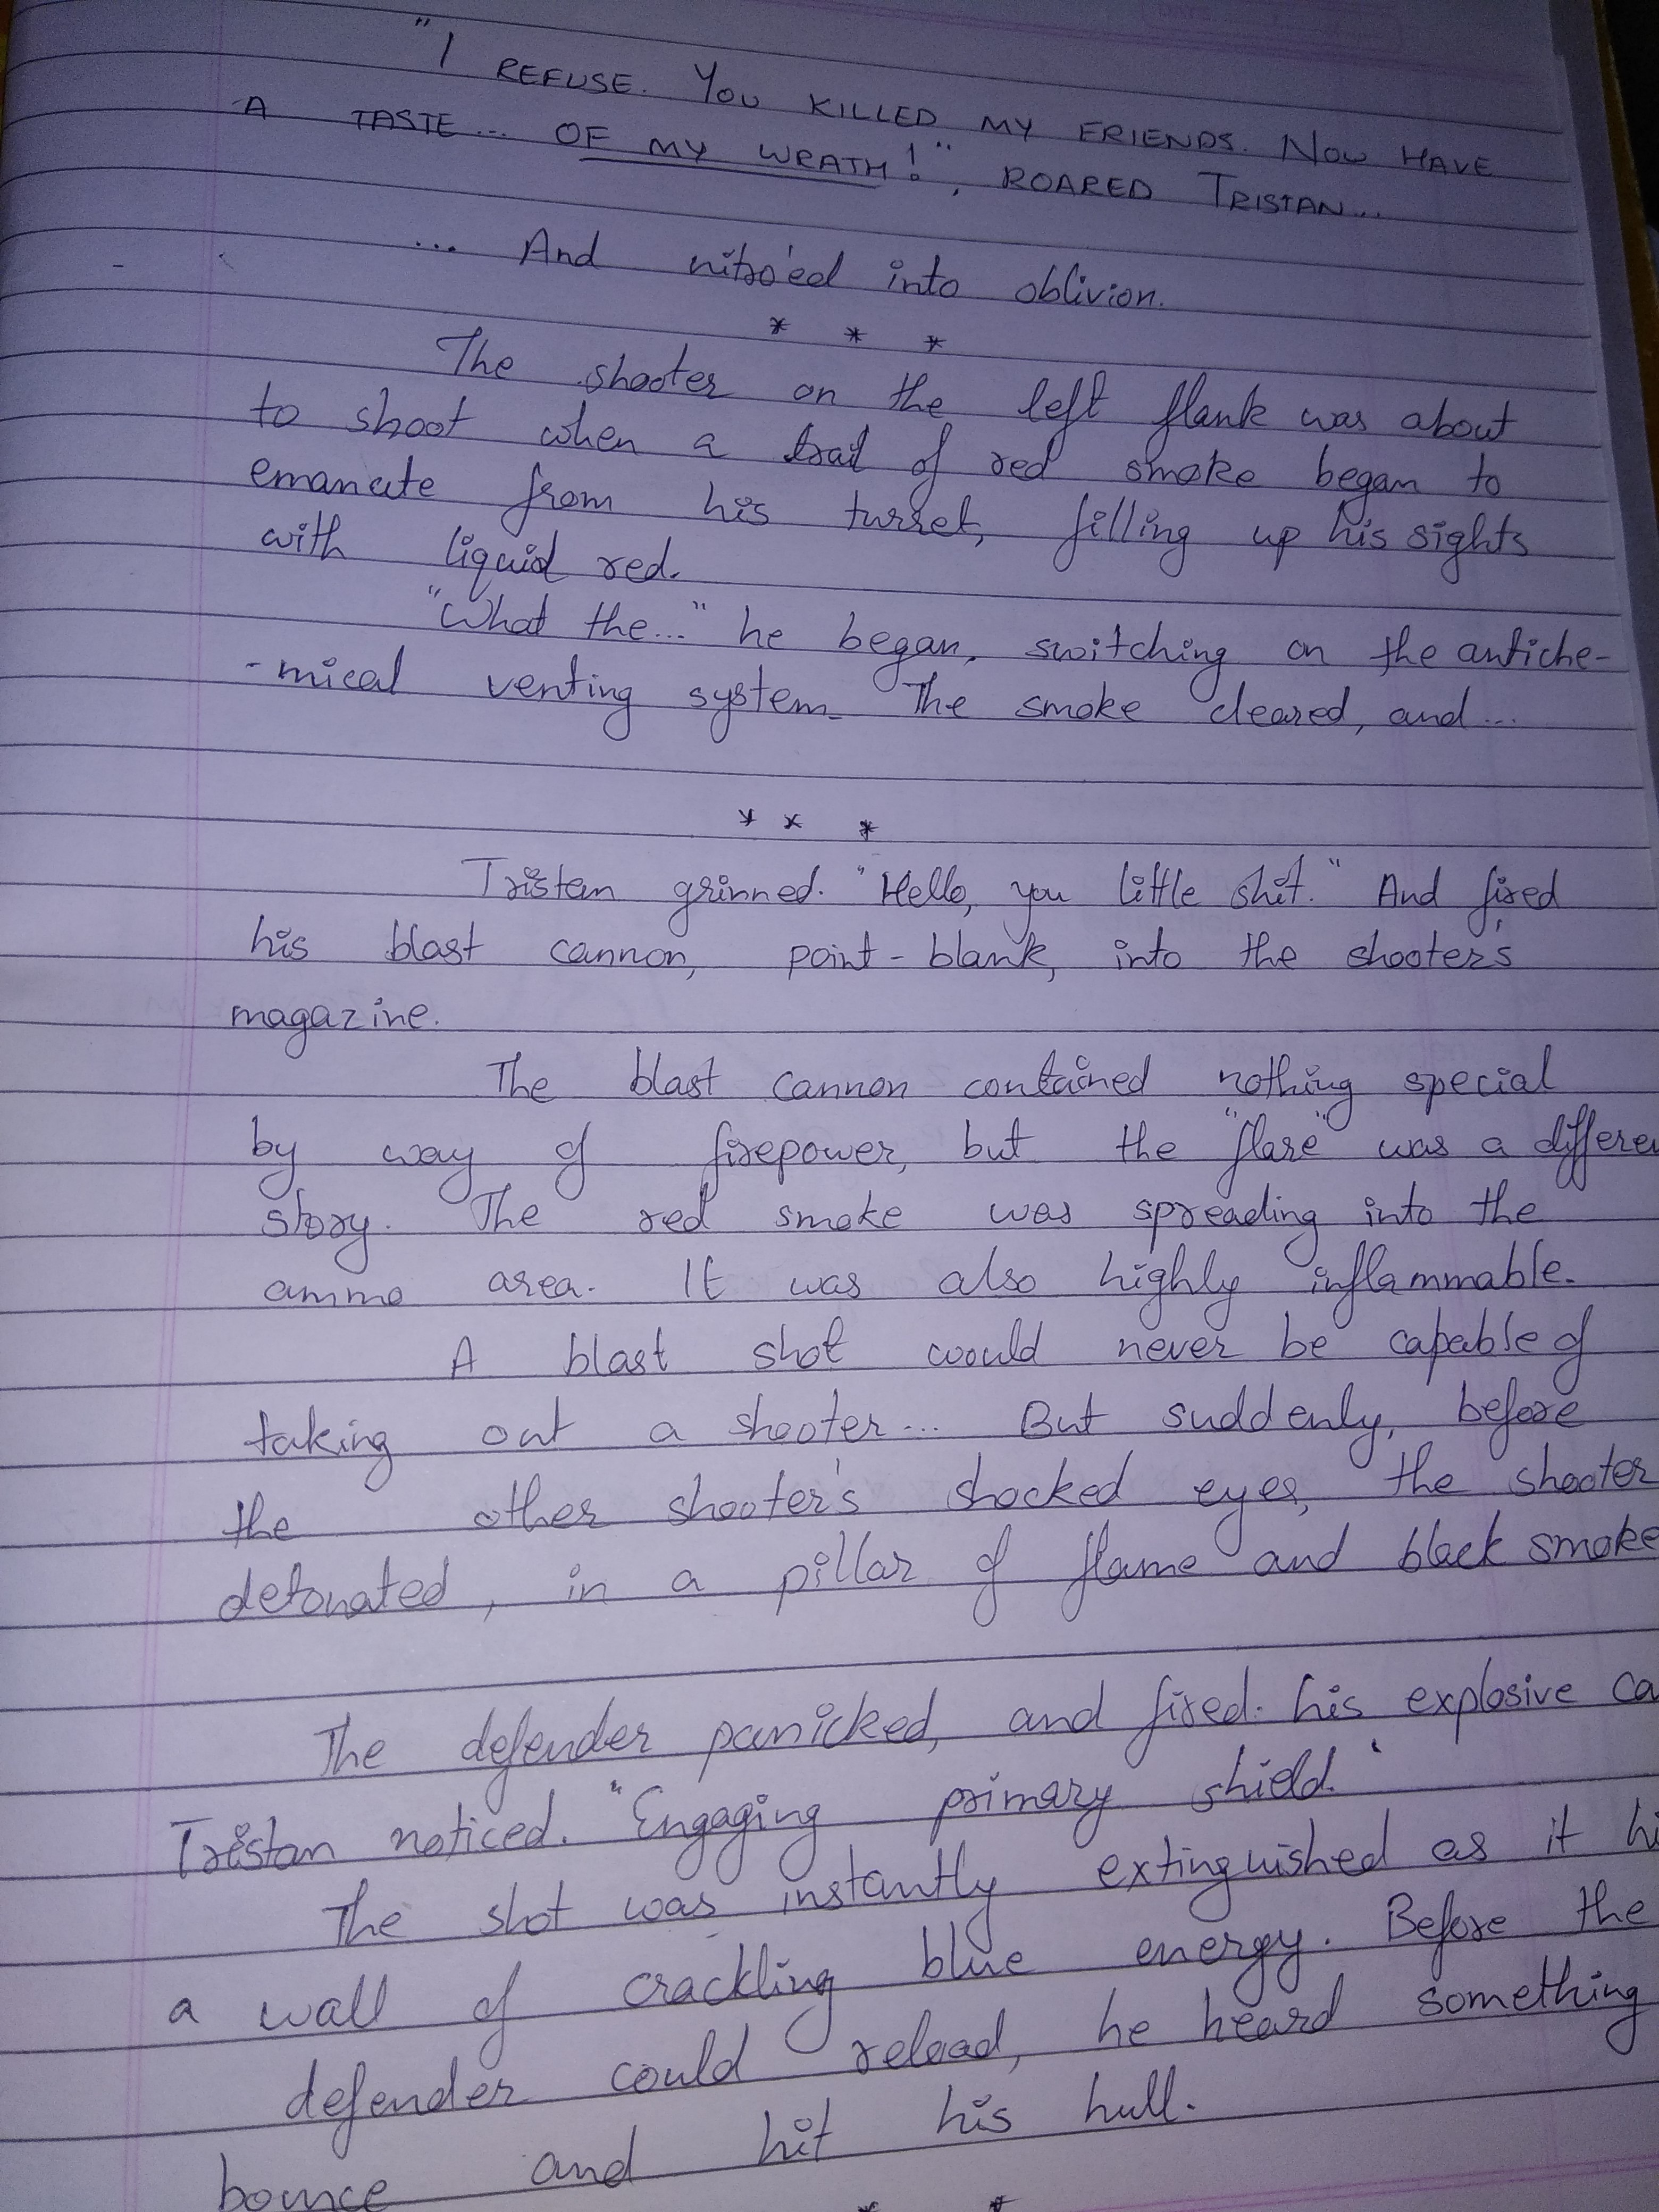 "I REFUSE. YOU KILLED MY FRIENDS. NOW HAVE
A TASTE... OF MY WRATH!", ROARED TRISTAN...
... And nitro'ed into oblivion.
* * *
The shooter on the left flank was about
to shoot when a trail of red smoke began to
emanate from his turret, filling up his sights
with liquid red.
"What the..." he began, switching on the antiche-
-mical venting system. The smoke cleared, and...
* * *
Tristan grinned. "Hello, you little shit." And fired
his blast cannon, point-blank, into the shooter's
magazine.
The blast cannon contained nothing special
by way of firepower, but the "flare" was a differe
story. The red smoke was spreading into the
ammo area. It was also highly inflammable.
A blast shot would never be capable of
taking out a shooter... But suddenly, before
the other shooter's shocked eyes, the shooter
detonated, in a pillar of flame and black smoke
The defender panicked, and fired his explosive ca
Tristan noticed. "Engaging primary shield."
The shot was instantly extinguished as it hi
a wall of crackling blue energy. Before the
defender could reload, he heard something
bounce and hit his hull.
* *